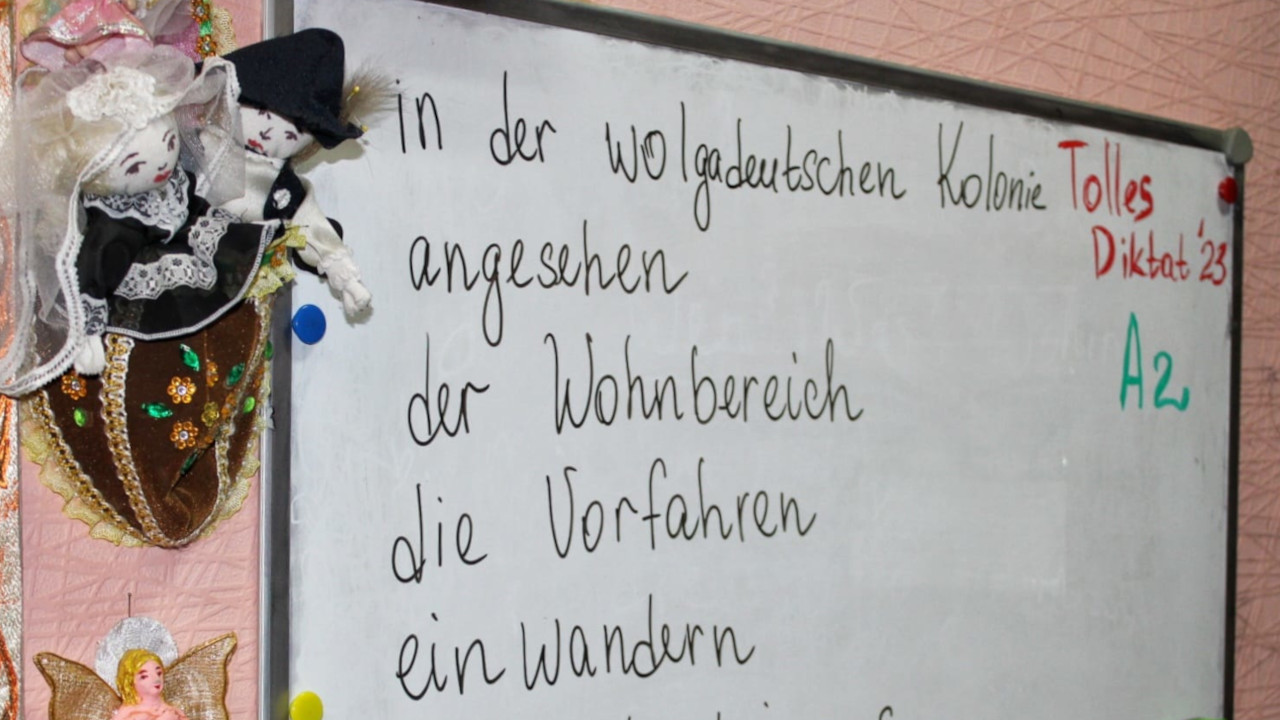 in der wolgadeutschen Kolonie
Tolles
Diktat '23
A2
angesehen
der Wohnbereich
die Vorfahren
einwandern